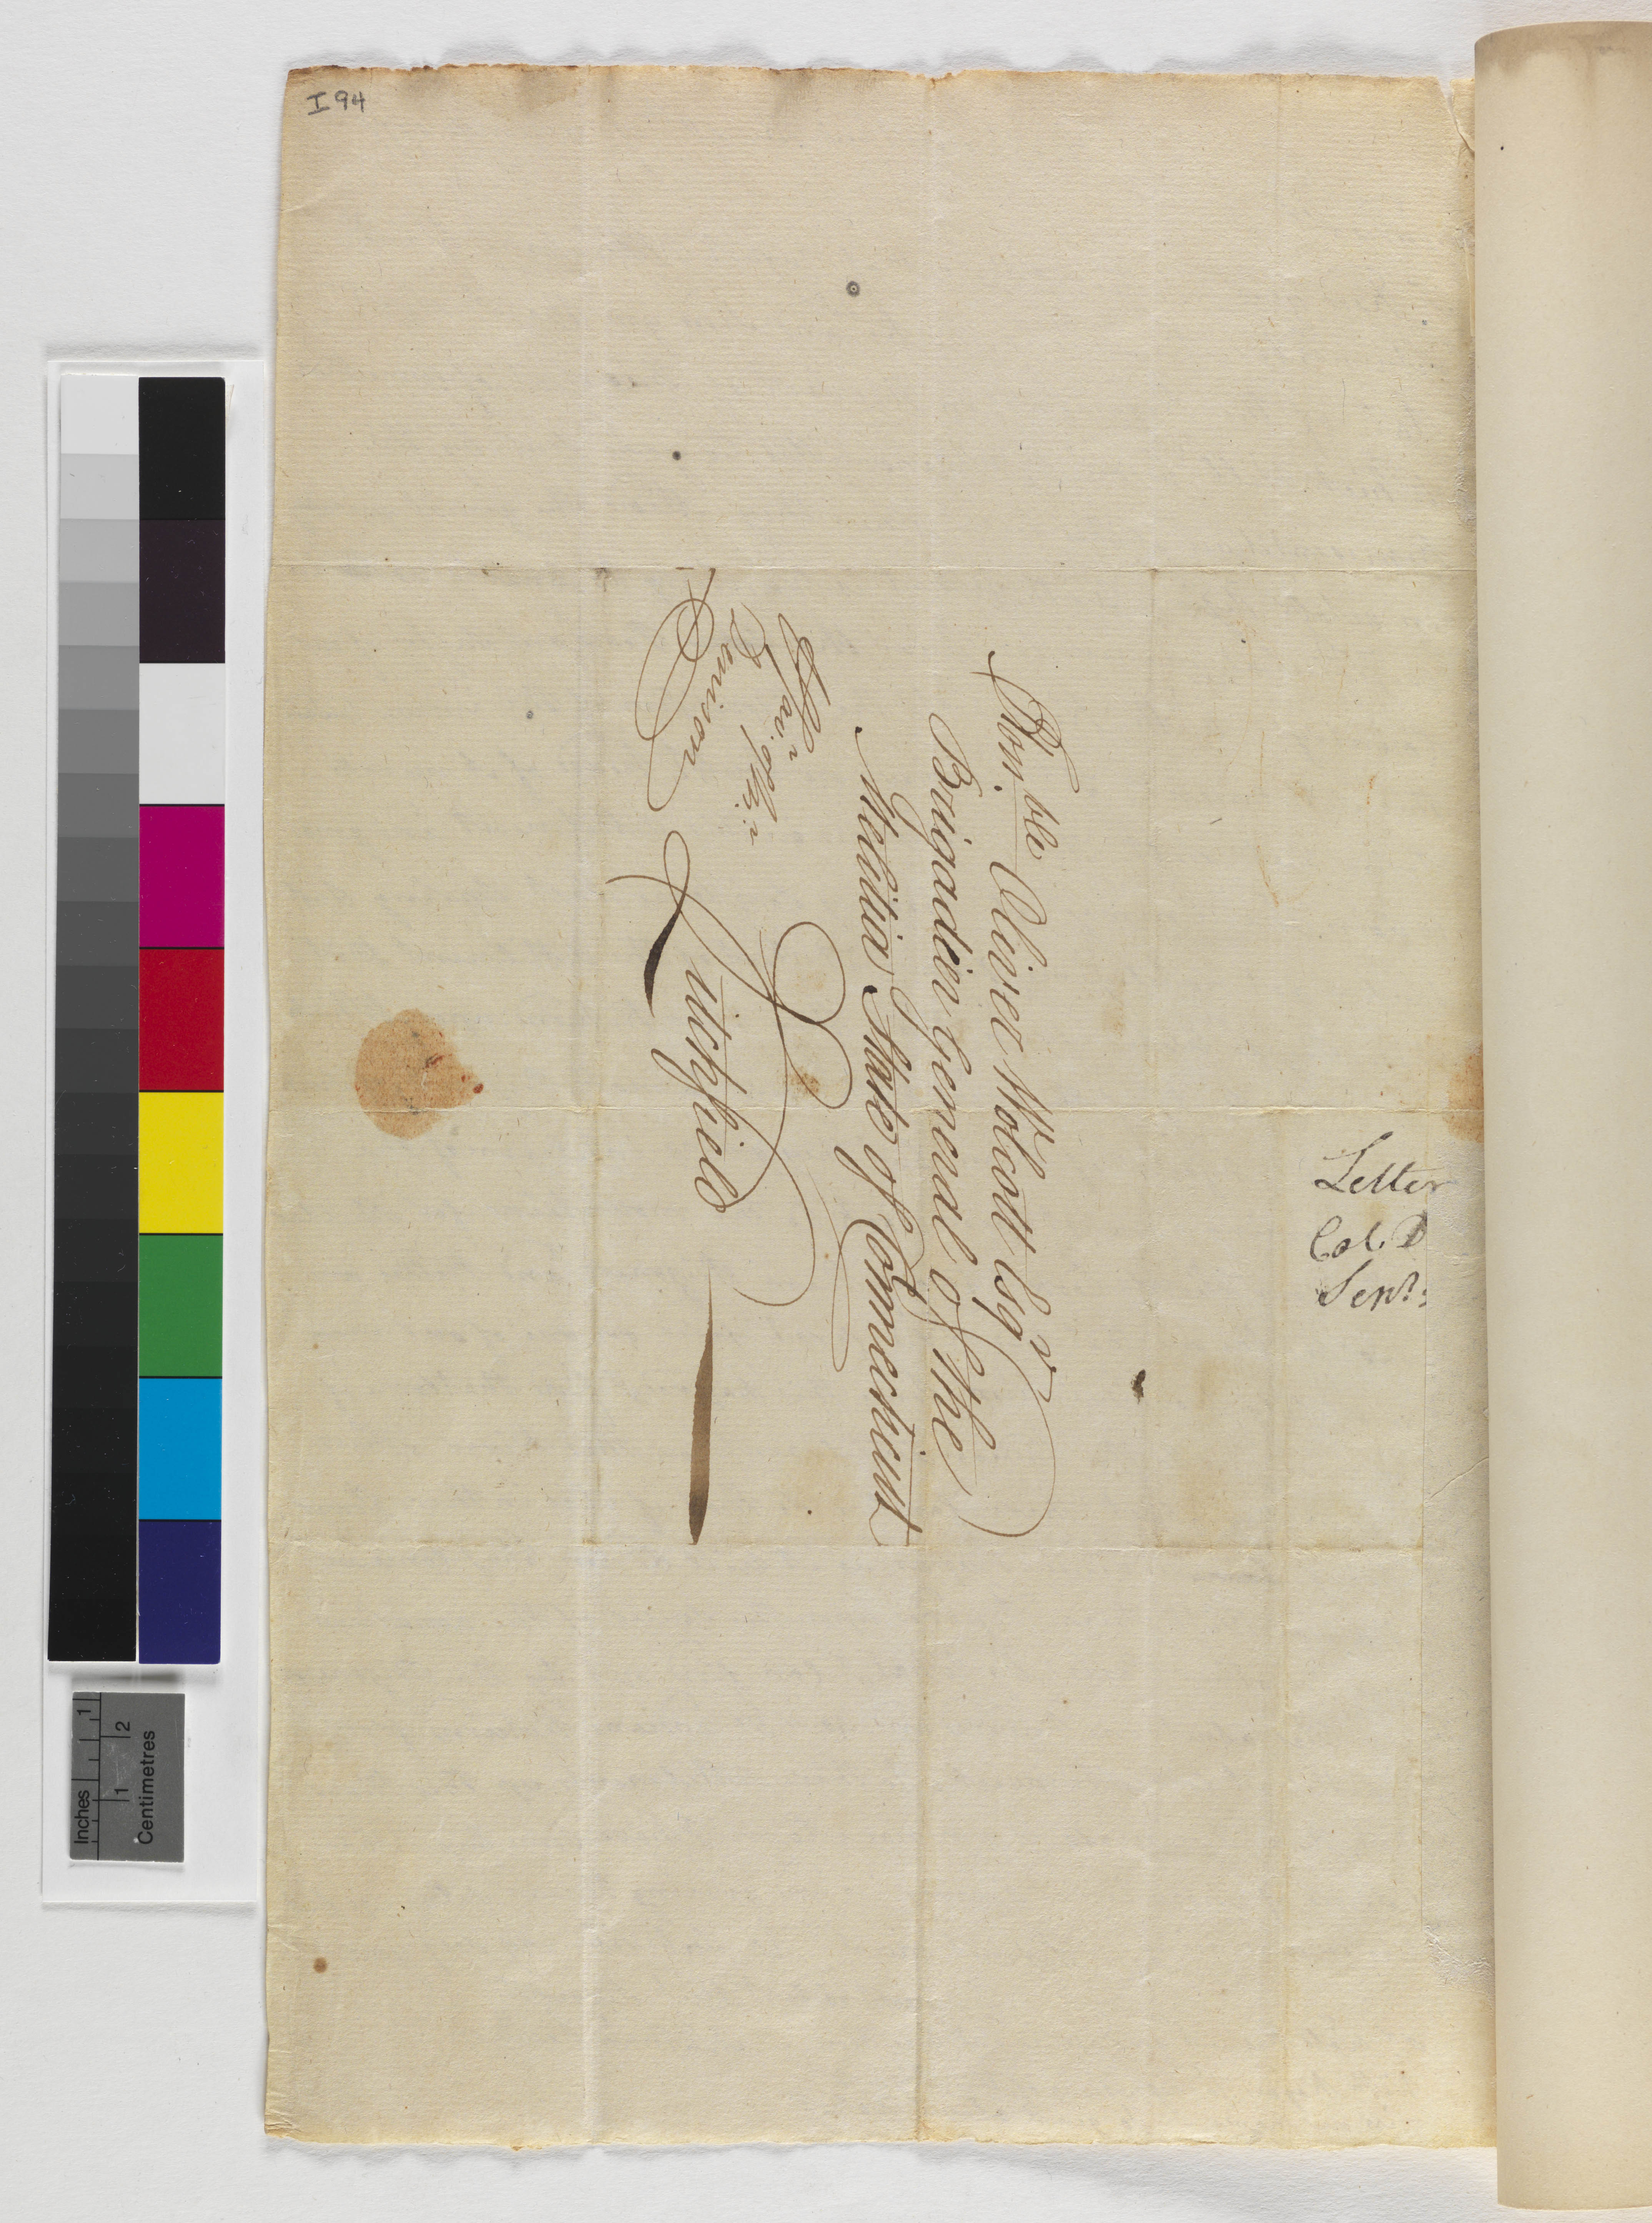 I 94
Hon.ble Oliver Wolcott Esqr
Brigadier General of the
Mehitia State of Connecticut
Litchfield
Denison
Letter
Col. D
Sepr:
Inches 1
1 2
Centimetres